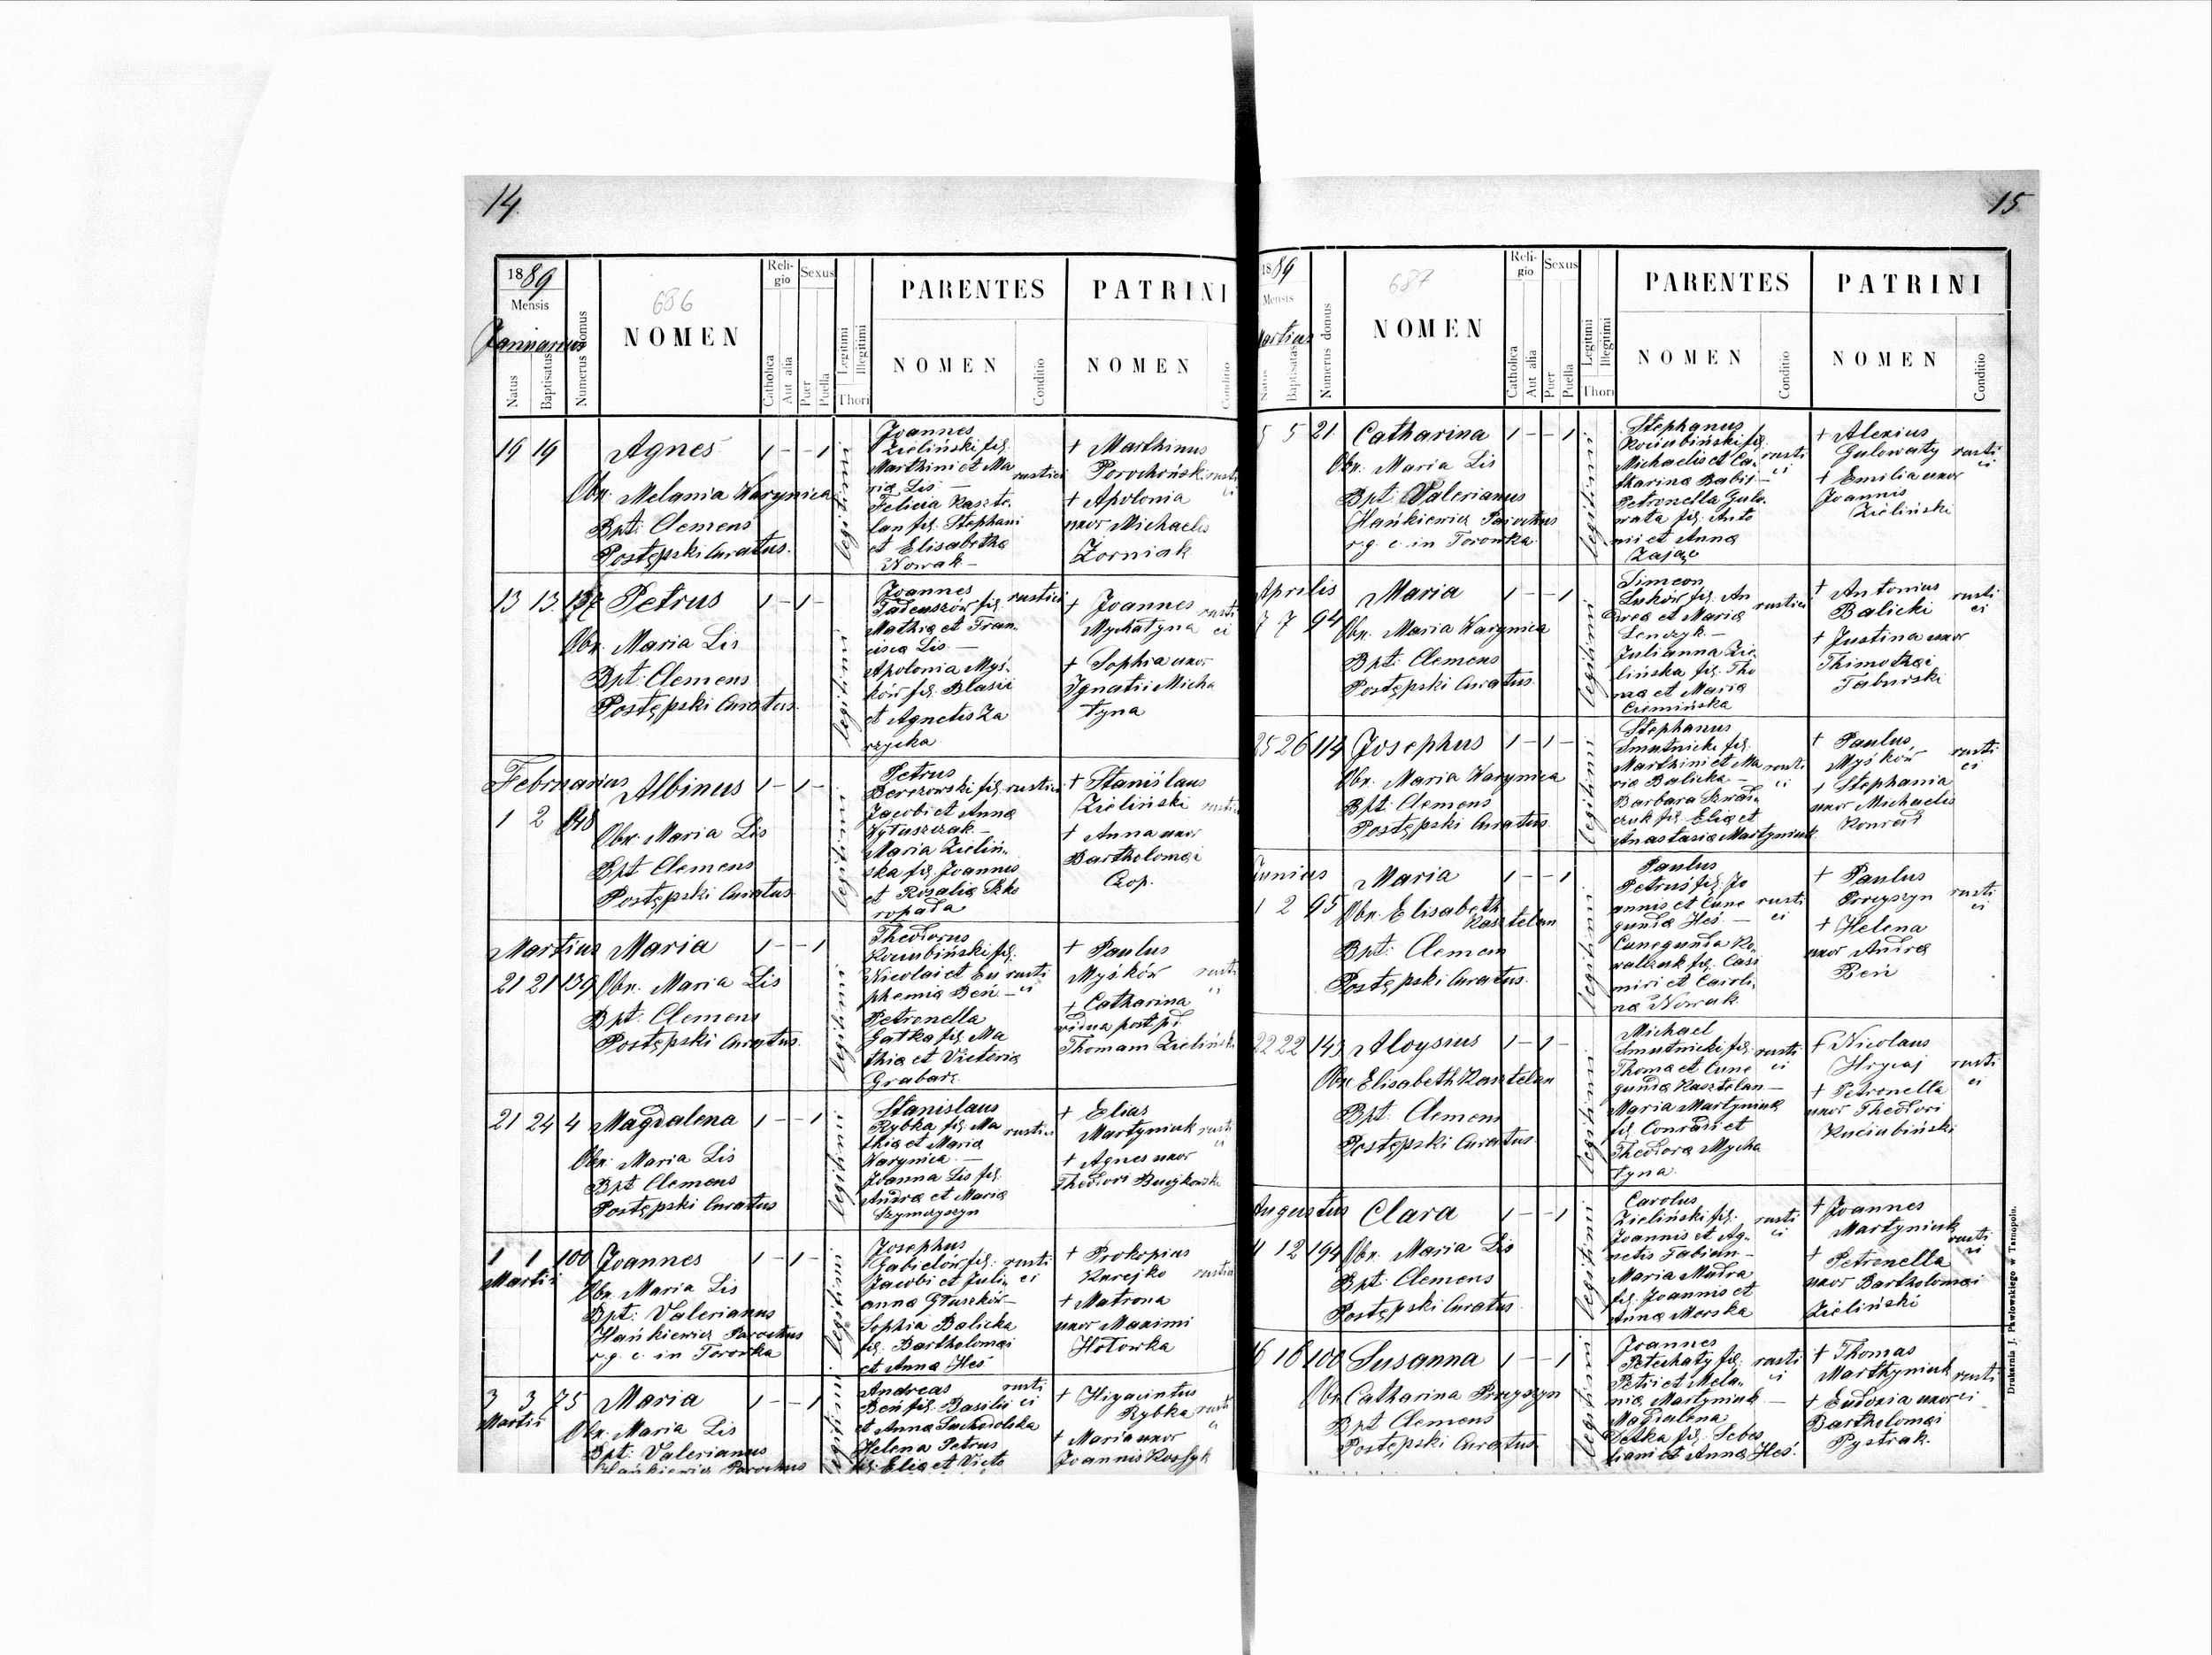 14.
1889
Mensis
Januarius
Natus
Baptisatus
Numerus domus
686
NOMEN
Religio
Catholica
Aut alia
Sexus
Puer
Puella
Legitimi
Illegitimi
Thori
PARENTES
NOMEN
Conditio
PATRINI
NOMEN
Conditio
19 19
Agnes 1 - - 1
Obs. Melania Warynica
Bpt. Clemens
Postępski Curatus.
legitimi
Joannes
Zieliński fil.
Marthini et Ma
ria Lis. —
Felicia Kaszte-
lan fil. Stephani
et Elisabetha
Nowak —
rustici
† Marthinus
Porochoński
† Apolonia
uxor Michaelis
Zorniak
rusti
ci
13 13 137 Petrus 1 - 1 -
Obs. Maria Lis
Bpt. Clemens
Postępski Curatus.
legitimi
Joannes
Tadeuszów fil.
Mathia et Fran-
cisca Lis. —
Apolonia Myś-
ków fil. Blasii
et Agnetis Za
rzycka
rustici
† Joannes
Mychatyna
† Sophia uxor
Ignatii Micha
tyna
rusti
ci
Februarius
1 2 148
Albinus 1 - 1 -
Obs. Maria Lis
Bpt Clemens
Postępski Curatus
legitimi
Petrus
Berezowski fil.
Jacobi et Anna
Wytuszczak —
Maria Zieliń-
ska fil. Joannis
et Rosalia Sko
ropada
rustici
† Stanislaus
Zieliński
† Anna uxor
Bartholomæi
Czop.
Martius
21 21 139
Maria 1 - - 1
Obs. Maria Lis
Bpt. Clemens
Postępski Curatus.
legitimi
Theodorus
Kociubiński fil.
Nicolai et Eu
phemia Beń —
Petronella
Gatka fil. Ma
thia et Victoria
Grabar.
rusti
ci
† Paulus
Myśków
† Catharina
vidua post pd.
Thomam Zieliński
rusti
ci
21 24 4 Magdalena 1 - - 1
Obs. Maria Lis
Bpt Clemens
Postępski Curatus
legitimi
Stanislaus
Rybka fil. Ma
thia et Maria
Warynica —
Joanna Lis fil.
Andrea et Maria
Szymczyszyn
rustici
† Elias
Martyniuk
† Agnes uxor
Theodori
rusti
ci
1 1 100 Joannes 1 - 1 -
Martii
Obs. Maria Lis
Bpt. Valerianus
Hańkiewicz Parochus
r. g. c. in Torówka
legitimi
Josephus
Gabielów fil.
Jacobi et Juli-
anna Głuszków —
Sophia Balicka
fil. Bartholomæi
et Anna Heś
rusti
ci
† Prokopius
Kurejko
† Matrona
uxor Maximi
Hołowka
rustici
3 3 75 Maria 1 - - 1
Martii
Obs. Maria Lis
Bpt. Valerianus
Hańkiewicz Parochus
legitimi
Andreas
Beń fil. Basilii
et Anna Suchodolska
Helena Petrus
fil. Elia et Victo
rusti
ci
† Hiyacintus
Rybka
† Maria uxor
Joannis
rusti
ci
15
1889
Mensis
Martius
Natus
Baptisatus
Numerus domus
687
NOMEN
Religio
Catholica
Aut alia
Sexus
Puer
Puella
Legitimi
Illegitimi
Thori
PARENTES
NOMEN
Conditio
PATRINI
NOMEN
Conditio
5 5 21 Catharina 1 - - 1
Obs. Maria Lis
Bpt. Valerianus
Hańkiewicz Parochus
r. g. c. in Torówka
legitimi
Stephanus
Kociubiński fil.
Michaelis et Ca-
tharina Babij —
Petronella Guło-
wata fil. Anto
nii et Anna
Zając
rusti
ci
† Alexius
Gulowaty
† Emilia uxor
Joannis
Zieliński
rusti
ci
Aprilis
7 7 94
Maria 1 - - 1
Obs. Maria Warynica
Bpt. Clemens
Postępski Curatus.
legitimi
Simeon
Luków fil. An
drea et Maria
Lenczyk —
Julianna Zie-
lińska fil. Tho
ma et Maria
Ciemińska
rustici
† Antonius
Balicki
† Justina uxor
Thimothæi
Taburski
rusti
ci
25 26 114 Josephus 1 - 1 -
Obs. Maria Warynica
Bpt. Clemens
Postępski Curatus
legitimi
Stephanus
Smutnicki fil.
Marthini et Ma
ria Balicka —
Barbara
czuk fil. Elia et
Anastasia Martyniuk
rusti
ci
† Paulus
Myśków
† Stephania
uxor Michaelis
Konrad
rusti
ci
Junius
1 2 95
Maria 1 - - 1
Obs. Elisabeth
Kasztelan
Bpt. Clemen
Postępski Curatus.
legitimi
Paulus
Petrus fil. Jo
annis et Cune
gunda Heś —
Cunegunda Ko-
walczuk fil. Casi
miri et Caroli-
na Nowak.
rusti
ci
† Paulus
Precyszyn
† Helena
uxor Andrea
Beń
rusti
ci
22 22 143 Aloysius 1 - 1 -
Obs Elisabeth Kasztelan
Bpt. Clemens
Postępski Curatus
legitimi
Michael
Smutnicki fil.
Thoma et Cune
gunda Kasztelan —
Maria Martyniuk
fil. Conradi et
Theodora Mycha
tyna
rusti
ci
† Nicolaus
Hrycaj
† Petronella
uxor Theodori
Kuciubiński
rusti
ci
Augustus
11 12 194
Clara 1 - - 1
Obs. Maria Lis
Bpt. Clemens
Postępski Curatus
legitimi
Carolus
Zieliński fil.
Joannis et Ag-
netis Fabian —
Maria Mudra
fil. Joannis et
Anna Morska
rusti
ci
† Joannes
Martyniuk
† Petronella
uxor Bartholomæi
Zieliński
rusti
ci
16 16 100 Susanna 1 - - 1
Obs. Catharina Precyszyn
Bpt Clemens
Postępski Curatus
legitimi
Joannes
Petechaty fil.
Petri et Mela-
nia Martyniuk —
Magdalena
Detka fil. Sebes
tiani et Anna Heś.
rusti
ci
† Thomas
Marthyniuk
† Eudoxia uxor
Bartholomæi
Pystrak.
rusti
ci
Drukarnia J. Pawłowskiego w Tarnopolu.